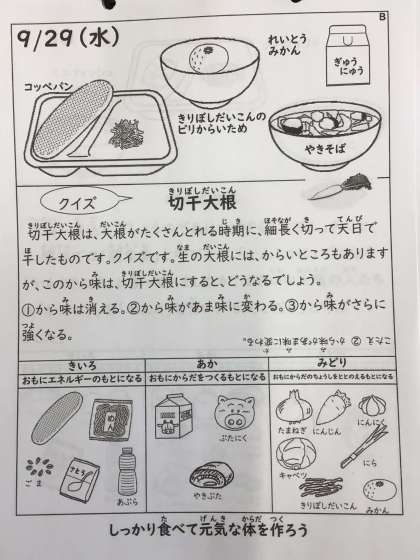 B
9/29(水)
れいとう
みかん
ぎゅう
にゅう
コッペパン
きりぼしだいこんの
ピリからいため
やきそば
クイズ
きりぼしだいこん
切干大根
きりぼしだいこん だいこん じき ほそなが き てんぴ
切干大根は、大根がたくさんとれる時期に、細長く切って天日で
ほ なま だいこん
干したものです。クイズです。生の大根には、からいところもあります
み きりぼしだいこん
が、このから味は、切干大根にすると、どうなるでしょう。
み き み み か み
①から味は消える。②から味があま味に変わる。③から味がさらに
つよ
強くなる。
こたえ ② から味があま味に変わる。
きいろ
あか
みどり
おもにエネルギーのもとになる
おもにからだをつくるもとになる
おもにからだのちょうしをととのえるもとになる
めん
ごま
さとう
あぶら
ぶたにく
やきぶた
たまねぎ
にんじん
にんにく
キャベツ
にら
きりぼしだいこん
みかん
た げんき からだ つく
しっかり食べて元気な体を作ろう